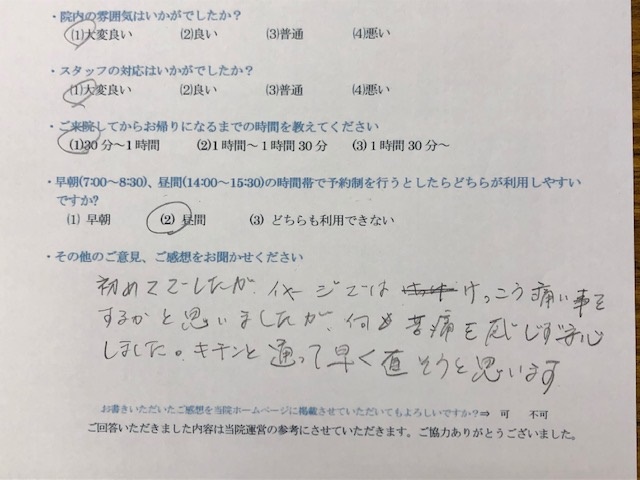 ・院内の雰囲気はいかがでしたか?
(1)大変良い (2)良い (3)普通 (4)悪い
・スタッフの対応はいかがでしたか?
(1)大変良い (2)良い (3)普通 (4)悪い
・ご来院してからお帰りになるまでの時間を教えてください
(1)30分～1時間 (2)1時間～1時間30分 (3)1時間30分～
・早朝(7:00～8:30)、昼間(14:00～15:30)の時間帯で予約制を行うとしたらどちらが利用しやすい
ですか?
(1) 早朝 (2) 昼間 (3) どちらも利用できない
・その他のご意見、ご感想をお聞かせください
初めてでしたが、イメージでは けっこう痛い事を
するかと思いましたが、何も苦痛を感じず安心
しました。キチンと通って早く直そうと思います
お書きいただいたご感想を当院ホームページに掲載させていただいてもよろしいですか?⇒ 可 不可
ご回答いただきました内容は当院運営の参考にさせていただきます。ご協力ありがとうございました。